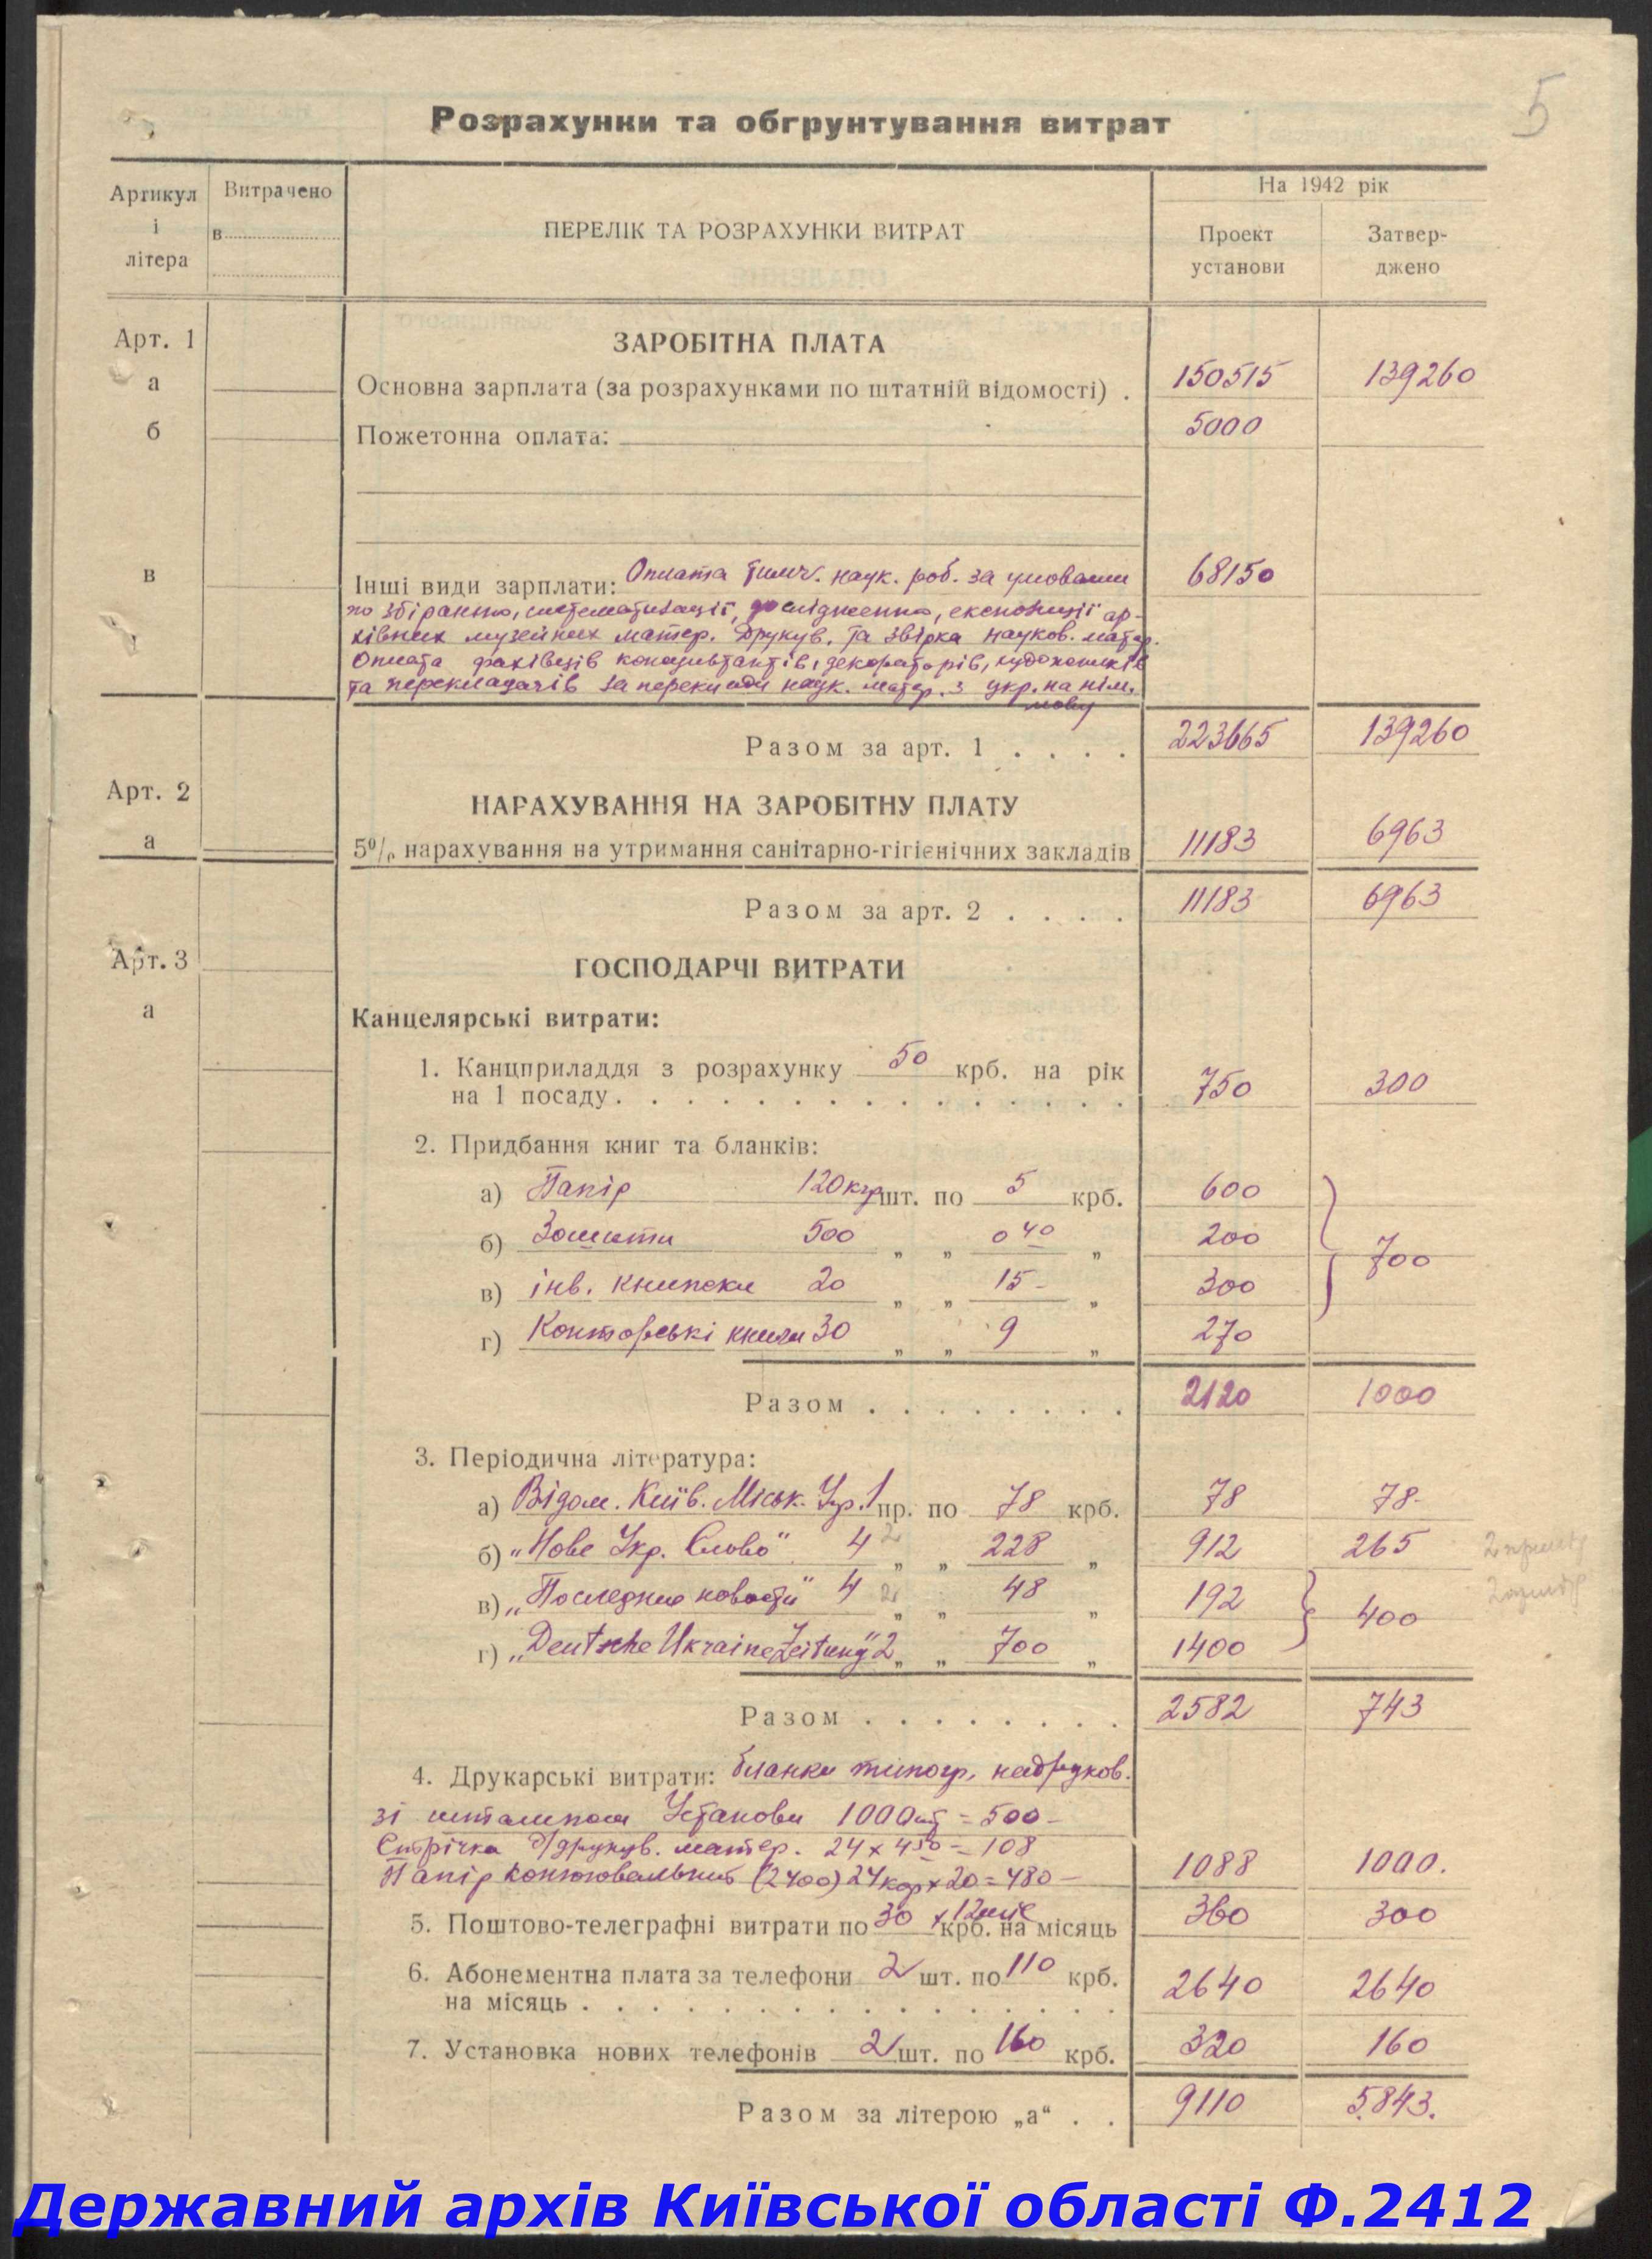 5
Розрахунки та обгрунтування витрат
Артикул і літера
Витрачено
в
ПЕРЕЛІК ТА РОЗРАХУНКИ ВИТРАТ
На 1942 рік
Проект установи
Затвер-
джено
Арт. 1
ЗАРОБІТНА ПЛАТА
а Основна зарплата (за розрахунками по штатній відомості) . 150515 139260
б Пожетонна оплата: 5000
в Інші види зарплати: Оплата тимч. наук. роб. за умовами 68150
по збіранню, систематизації, дослідженню, експозиції ар-
хівних музейних матер. Друкув. та звірка науков. матер.
Оплата фахівців консультантів, декораторів, художників
та перекладачів за переклади наук. матер. з укр. на нім.
мову
Разом за арт. 1 . . . . 223665 139260
Арт. 2
НАРАХУВАННЯ НА ЗАРОБІТНУ ПЛАТУ
а 5% нарахування на утримання санітарно-гігієнічних закладів 11183 6963
Разом за арт. 2 . . . . 11183 6963
Арт. 3
ГОСПОДАРЧІ ВИТРАТИ
а
Канцелярські витрати:
1. Канцприладдя з розрахунку 50 крб. на рік
на 1 посаду . . . . . . . . . . . . . . . 750 300
2. Придбання книг та бланків:
а) Папір 120 кгр шт. по 5 крб. 600
б) Зошити 500 „ „ 0 40 „ 200 700
в) інв. книжки 20 „ „ 15 - „ 300
г) Конторські книги 30 „ „ 9 „ 270
Разом . . . . . . . . 2120 1000
3. Періодична література:
а) Відом. Київ. Міськ. Упр. 1 пр. по 78 крб. 78 78-
б) „Нове Укр. Слово" 4 2 „ „ 228 „ 912 265
в) „Последние новости" 4 2 „ „ 48 „ 192 400
г) „Deutsche Ukraine Zeitung" 2 „ „ 700 „ 1400
Разом . . . . . . . . 2582 743
4. Друкарські витрати: бланки типогр. надруков.
зі штампом Установи 1000 шт = 500 -
Стрічка д/друкув. матер. 24 x 4 50 = 108
Папір копіювальний (2400) 24 кор x 20 = 480 - 1088 1000.
5. Поштово-телеграфні витрати по 30 x 12 міс крб. на місяць 360 300
6. Абонементна плата за телефони 2 шт. по 110 крб.
на місяць . . . . . . . . . . . . . . . . 2640 2640
7. Установка нових телефонів 2 шт. по 160 крб. 320 160
Разом за літерою „а" . . 9110 5.843.
Державний архів Київської області Ф.2412